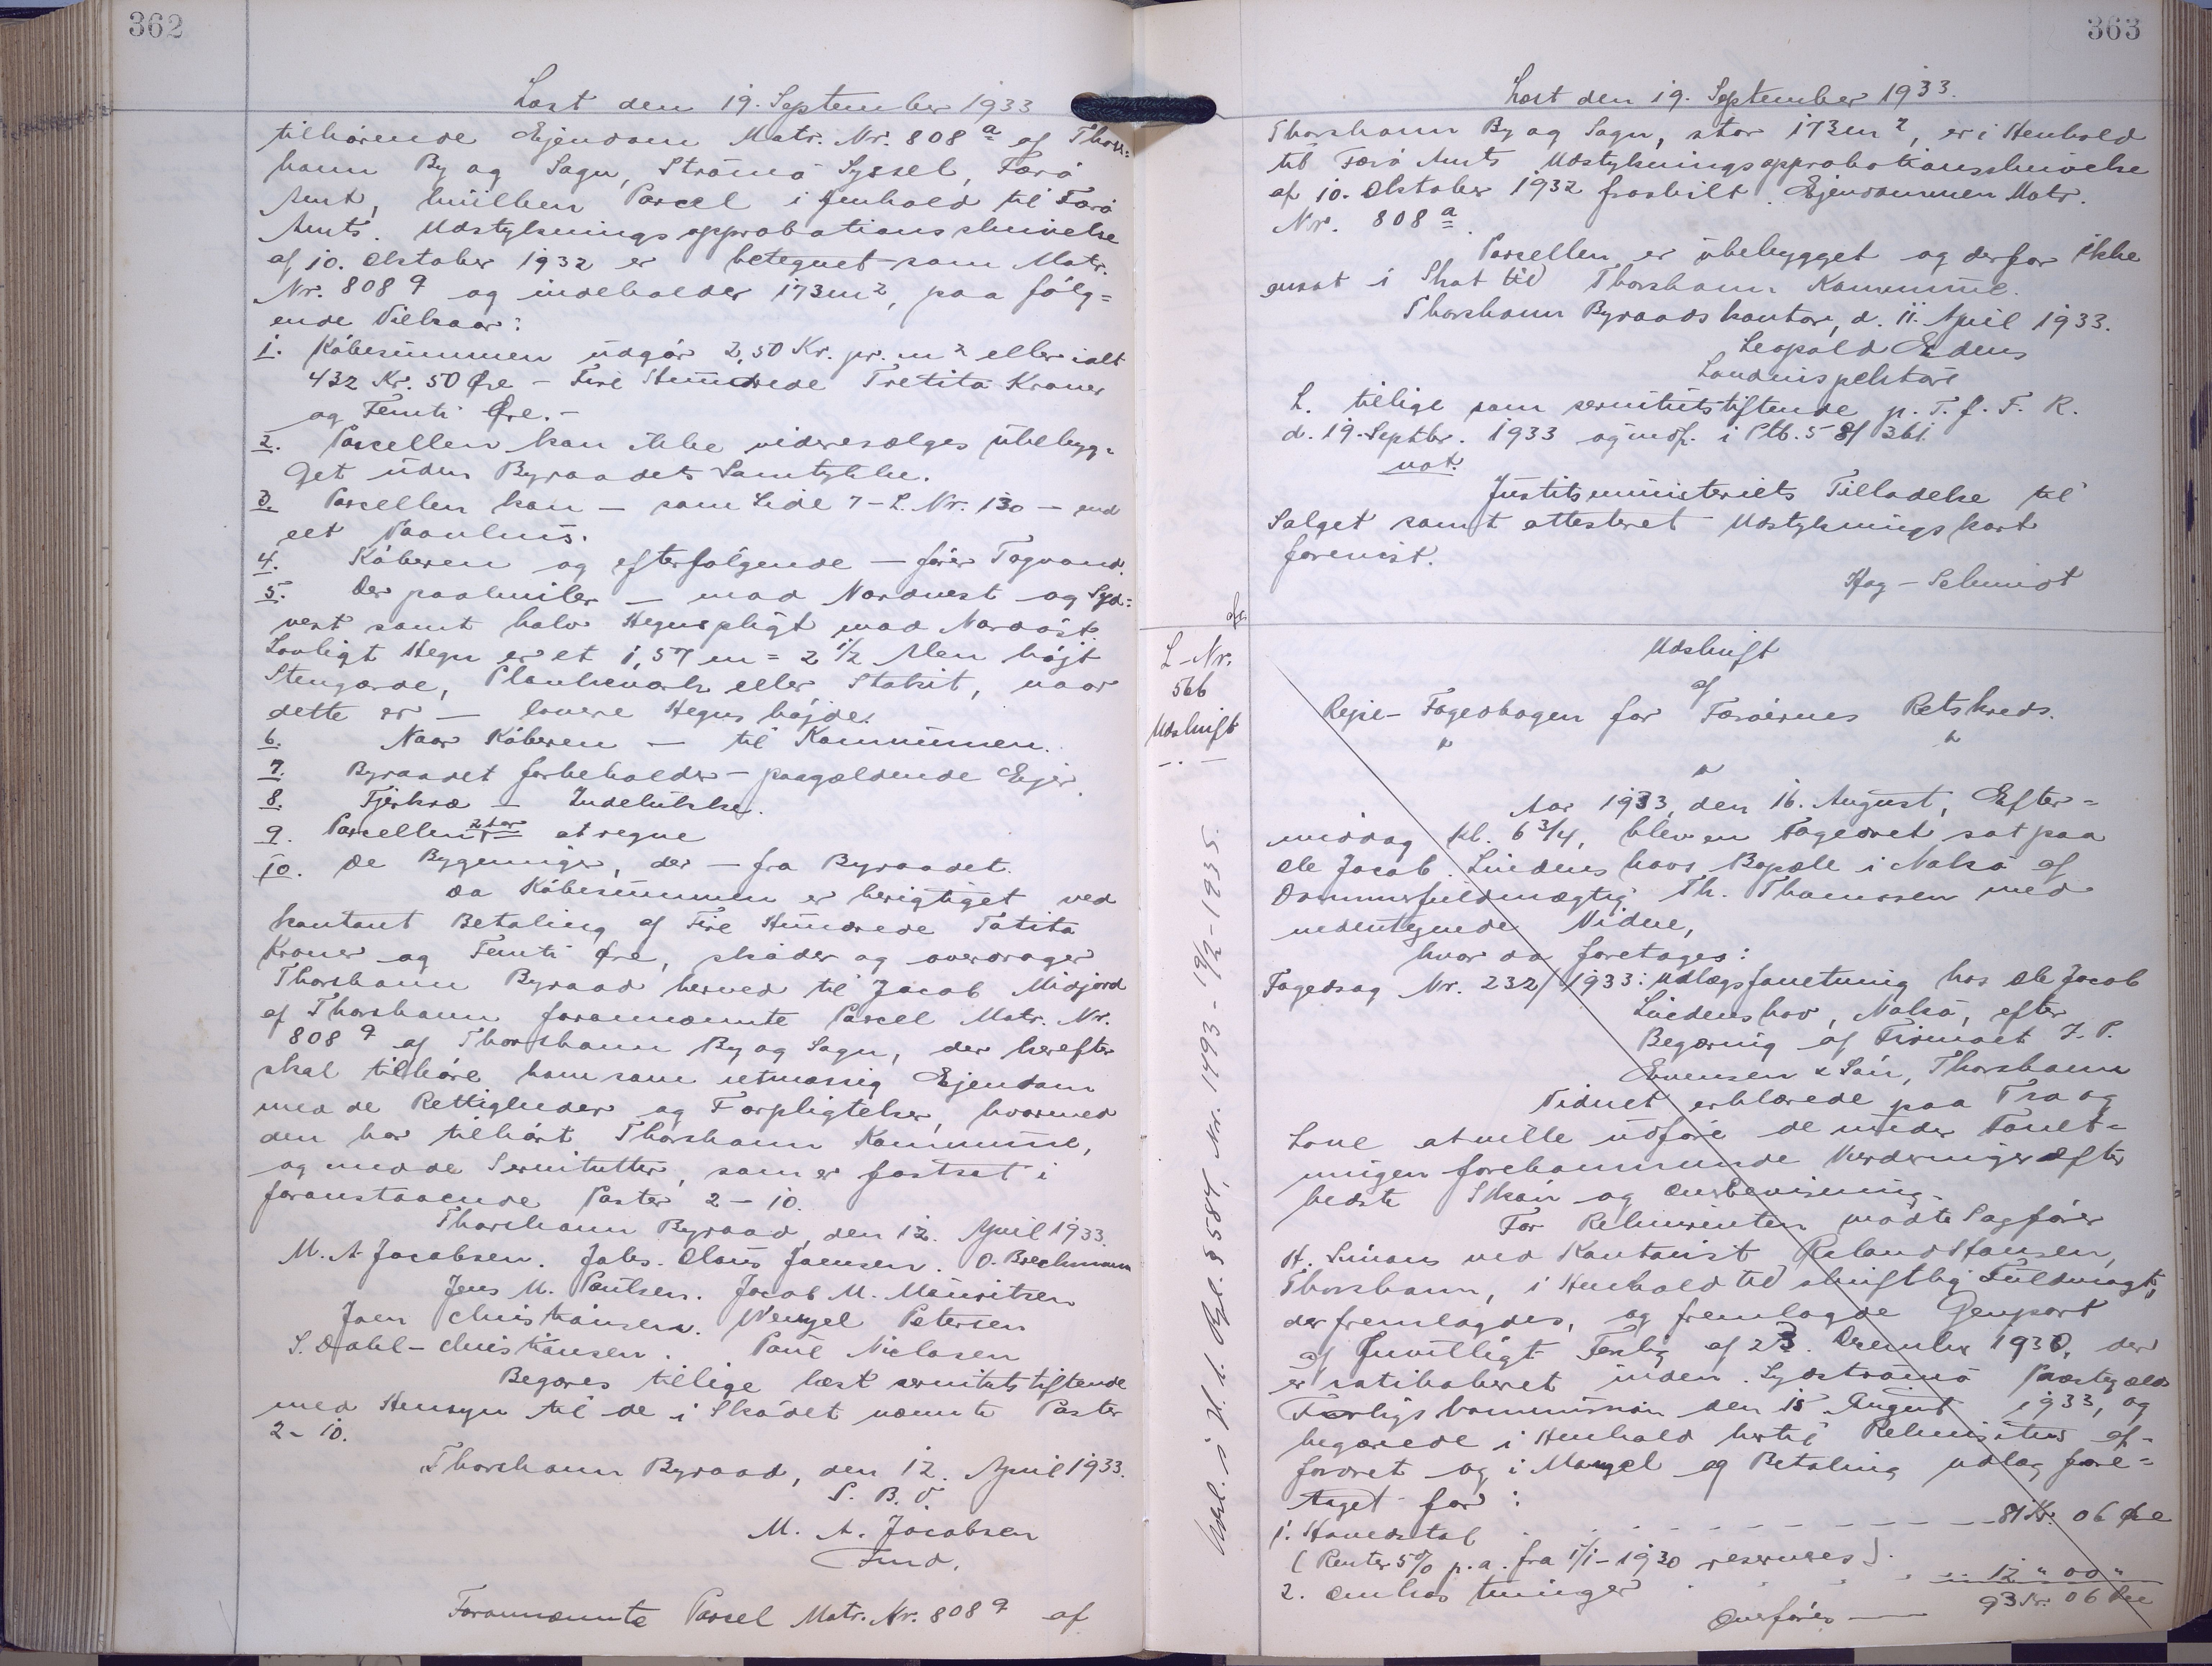 362
Læst den 19. September 1933
tilhørende Ejendom Matr. Nr. 808 a af Thors=
havn By og Sogn, Strømø Syssel, Færø
Amt, hvilken Parcel i Henhold til Færø
Amts. Udstykningsapprobationsskrivelse
af 10. Oktober 1932 er betegnet som Matr.
Nr. 808 q og indeholder 173 m², paa følg=
ende Vilkaar:
1. Købesummen udgør 2,50 Kr. pr. m² eller ialt
432 Kr. 50 Øre - Fire Hundrede Tretito Kroner
og Femti Øre. -
2. Parcellen kan ikke videresælges ubebyg=
get uden Byraadets Samtykke.
3. Parcellen kan - som Side 7 - L. Nr. 130 - end
eet Vaanhus.
4. Køberen og efterfølgende - fører Tagvand.
5. Der paahviler - mod Nordvest og Syd=
vest samt halv Hegnspligt mod Nordøst.
Lovligt Hegn er et 1,57 m = 2 1/2 Alen højt
Stengærde, Plankeværk eller Stakit, naar
dette er - lovere Hegns højde.
6. Naar Køberen - til Kommunen.
7. Byraadet forbeholder - paagældende Ejer.
8. Fjerkræ - Indelukke.
9. Parcellen at regne
10. De Bygninger, der - fra Byraadet.
Da Købesummen er berigtiget ved
kontant Betaling af Fire Hundrede Totita
Kroner og Femti Øre, skøder og overdrager
Thorshavn Byraad herved til Jacob Midjord
af Thorshavn forannævnte Parcel Matr. Nr.
808 q af Thorshavn By og Sogn, der herefter
skal tilhøre ham som retmæssig Ejendom
med de Rettigheder og Forpligtelser, hvormed
den har tilhørt Thorshavn Kommune,
og med de Servitutter, som er fastsat i
foranstaaende Poster 2 - 10.
Thorshavn Byraad, den 12. April 1933.
M. A. Jacobsen. Johs. Olaus Joensen. O. Brechmann
Jens M. Poulsen. Jacob M. Mouritsen
Joen Christiansen. Wenzel Petersen
S. Dahl-Christiansen. Poul Niclasen
Begæres tillige læst servitutstiftende
med Hensyn til de i Skødet nævnte Poster
2 - 10.
Thorshavn Byraad, den 12. April 1933.
P. B. V.
M. A. Jacobsen
Fmd.
Forannævnte Parcel Matr. Nr. 808 q af
363
Læst den 19. September 1933.
Thorshavn By og Sogn, stor 173 m², er i Henhold
til Færø Amts Udstykningsapprobationsskrivelse
af 10. Oktober 1932 fraskilt Ejendommen Matr.
Nr. 808 a.
Parcellen er ubebygget og derfor ikke
ansat i Skat til Thorshavn Kommune.
Thorshavn Byraadskontor, d. 11. April 1933.
Leopold Edens
Landinspektør
L. tillige som servitutstiftende p. T. f. F. R.
d. 19. Septbr. 1933 og indf. i Ptb. 5 Bl 361.
not.
Justitsministeriets Tilladelse til
Salget samt attesteret Udstykningskort
forevist.
Høg-Schmidt
L-Nr.
566
Udskrift
Udskrift
af
Rejse-Fogedbogen for Færøernes Retskreds.
Aar 1933, den 16. August, Efter=
middag Kl. 6 3/4, blev en Fogedret sat paa
Ole Jacob Lindenshovs Bopæle i Nolsø af
Dommerfuldmægtig Th. Thomassen med
undertegnede Vidne,
hvor da foretoges:
Fogedsag Nr. 232/1933: Udlægsforretning hos Ole Jacob
Lindenshov, Nolsø, efter
Begæring af Firmaet J. P.
Evensen & Søn, Thorshavn
Vidnet erklærede paa Tro og
Love at ville udføre de under Forret=
ningen forekommende Vurderinger efter
bedste Skøn og Overbevisning.
For Rekvirenten mødte Sagfører
H. Simons ved Kontorist Roland Hansen,
Thorshavn, i Henhold til skriftlig Fuldmagt,
der fremlagdes, og fremlagde Genpart
af frivilligt Forlig af 23. December 1930, der
er ratihaberet inden Sydstrømø Præstegælds
Forligskommission den 15 August 1933, og
begærede i Henhold hertil Rekvisitus af=
fordret og i Mangel af Betaling Udlæg fore=
taget for:
1. Hovedstol 81 Kr. 06 Øre
(Renter 5% p. a. fra 1/1-1930 reserveres).
2. Omkostninger 12 " 00 "
93 Kr. 06 Øre
Overføres
Udsl. i H. t. Bgl. § 5584, Nr. 1493 - 19/2 - 1935.